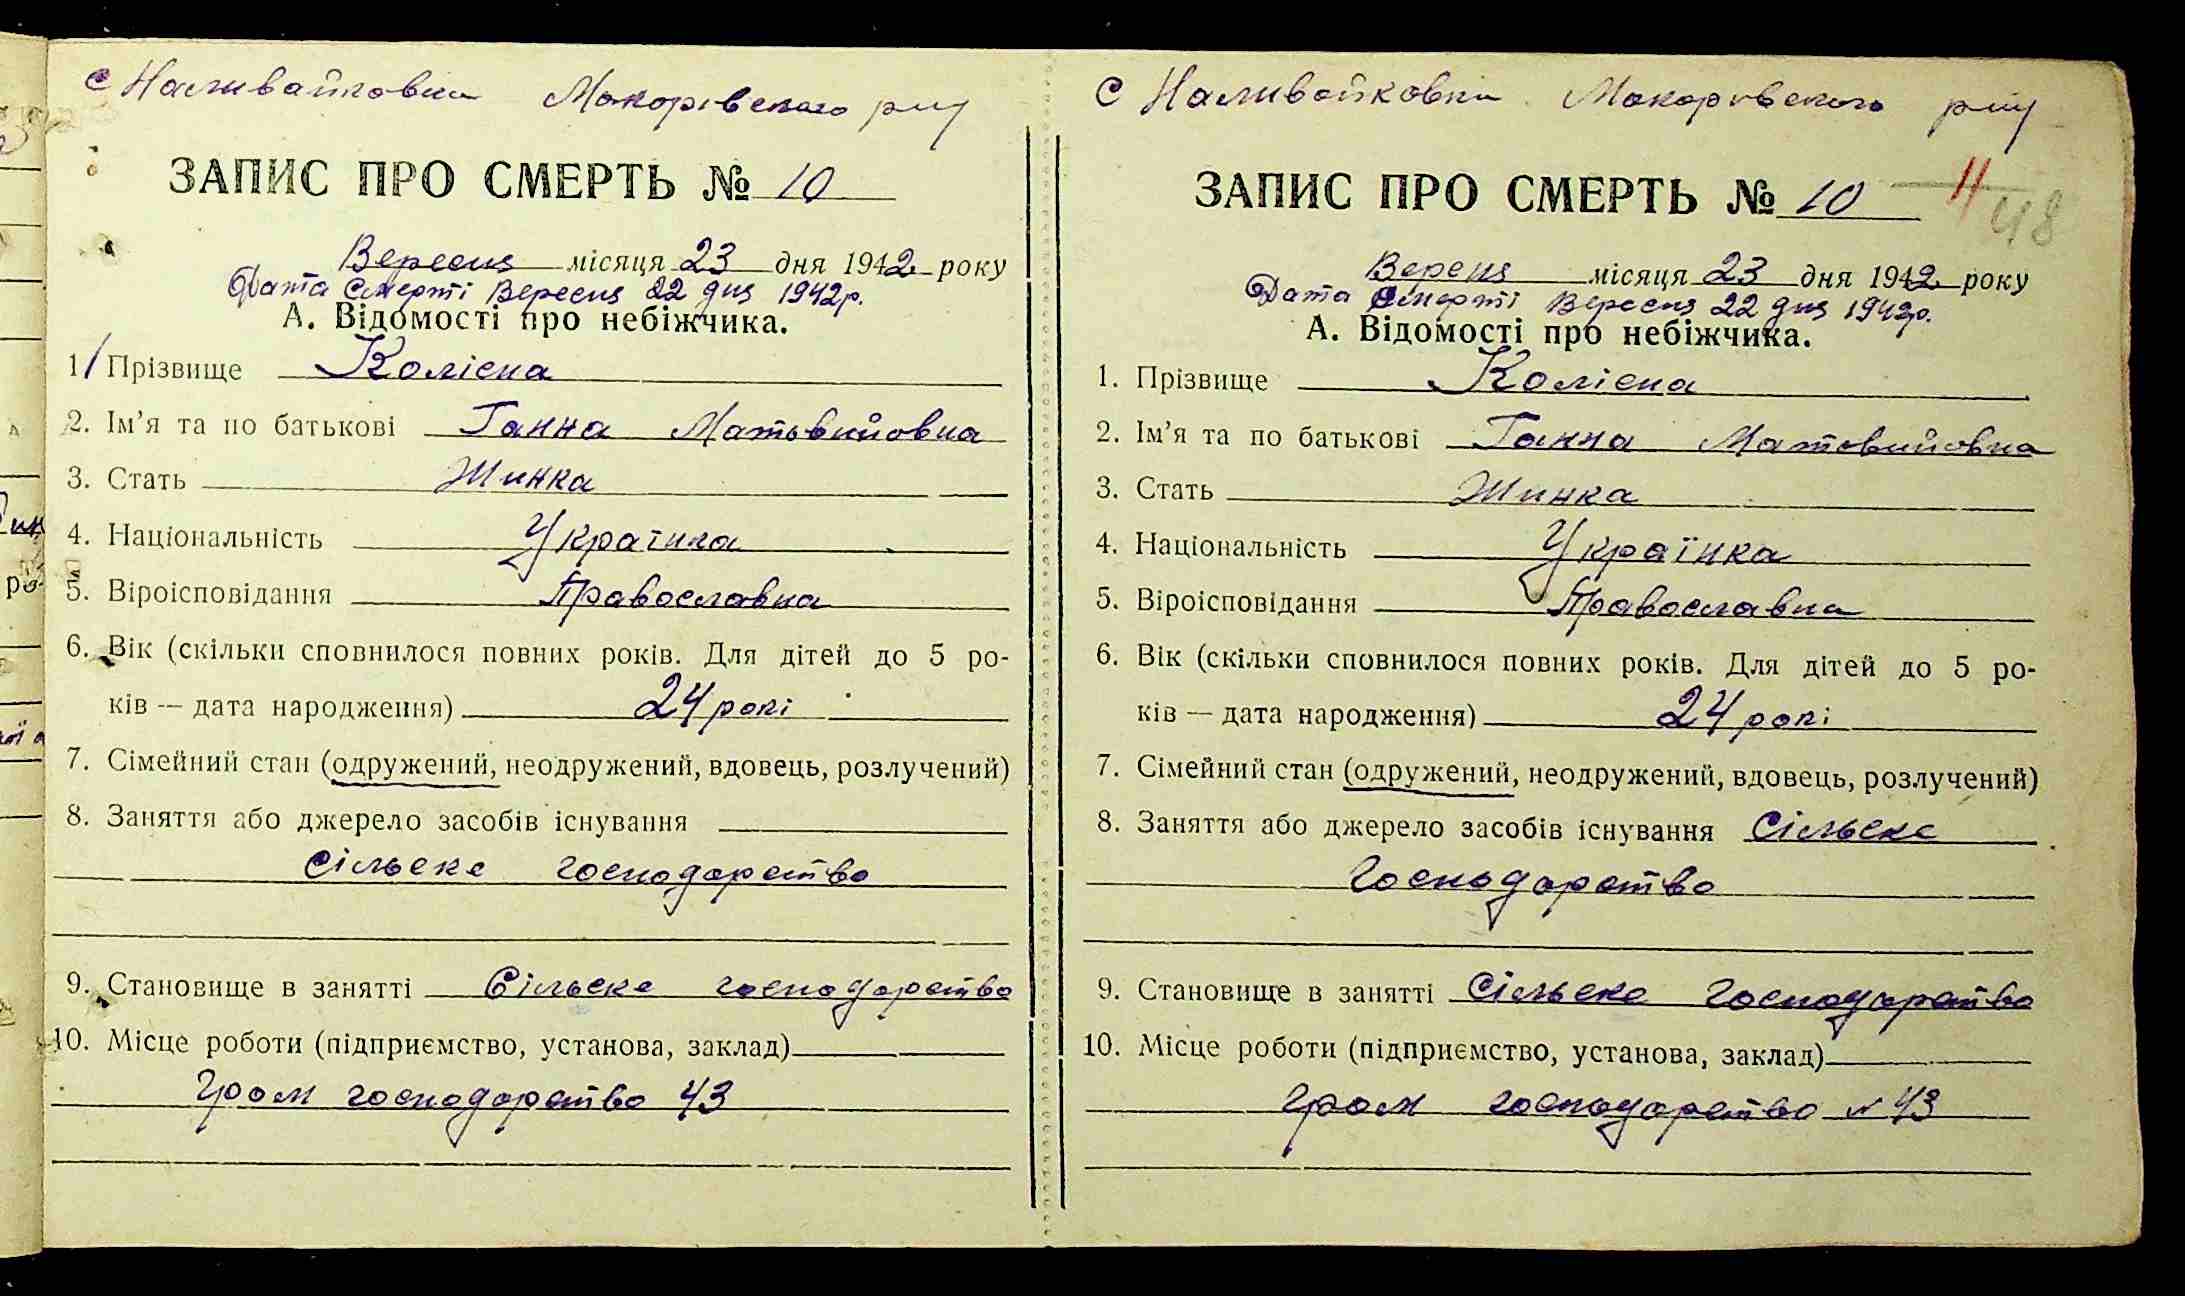 с Наливайковка Макорівского рну
ЗАПИС ПРО СМЕРТЬ № 10
Вересня місяця 23 дня 1942 року
Дата Смерті Вересня 22 дня 1942р.
А. Відомості про небіжчика.
1. Прізвище Колієна
2. Ім'я та по батькові Ганна Матвийовна
3. Стать Жинка
4. Національність Українка
5. Віроісповідання Православна
6. Вік (скільки сповнилося повних років. Для дітей до 5 ро-
ків — дата народження) 24 рокі
7. Сімейний стан (одружений, неодружений, вдовець, розлучений)
8. Заняття або джерело засобів існування
Сільске господарство
9. Становище в занятті Сільске господарство
10. Місце роботи (підприємство, установа, заклад)
Гром господарство 43
с Наливайковка Макорівского рну
ЗАПИС ПРО СМЕРТЬ № 10
11
48
Вереня місяця 23 дня 1942 року
Дата Смерті Вересня 22 дня 1942р.
А. Відомості про небіжчика.
1. Прізвище Колієна
2. Ім'я та по батькові Ганна Матвийовна
3. Стать Жинка
4. Національність Українка
5. Віроісповідання Православна
6. Вік (скільки сповнилося повних років. Для дітей до 5 ро-
ків — дата народження) 24 рокі
7. Сімейний стан (одружений, неодружений, вдовець, розлучений)
8. Заняття або джерело засобів існування Сільске
Господарство
9. Становище в занятті Сільске господарство
10. Місце роботи (підприємство, установа, заклад)
Гром господарство № 43